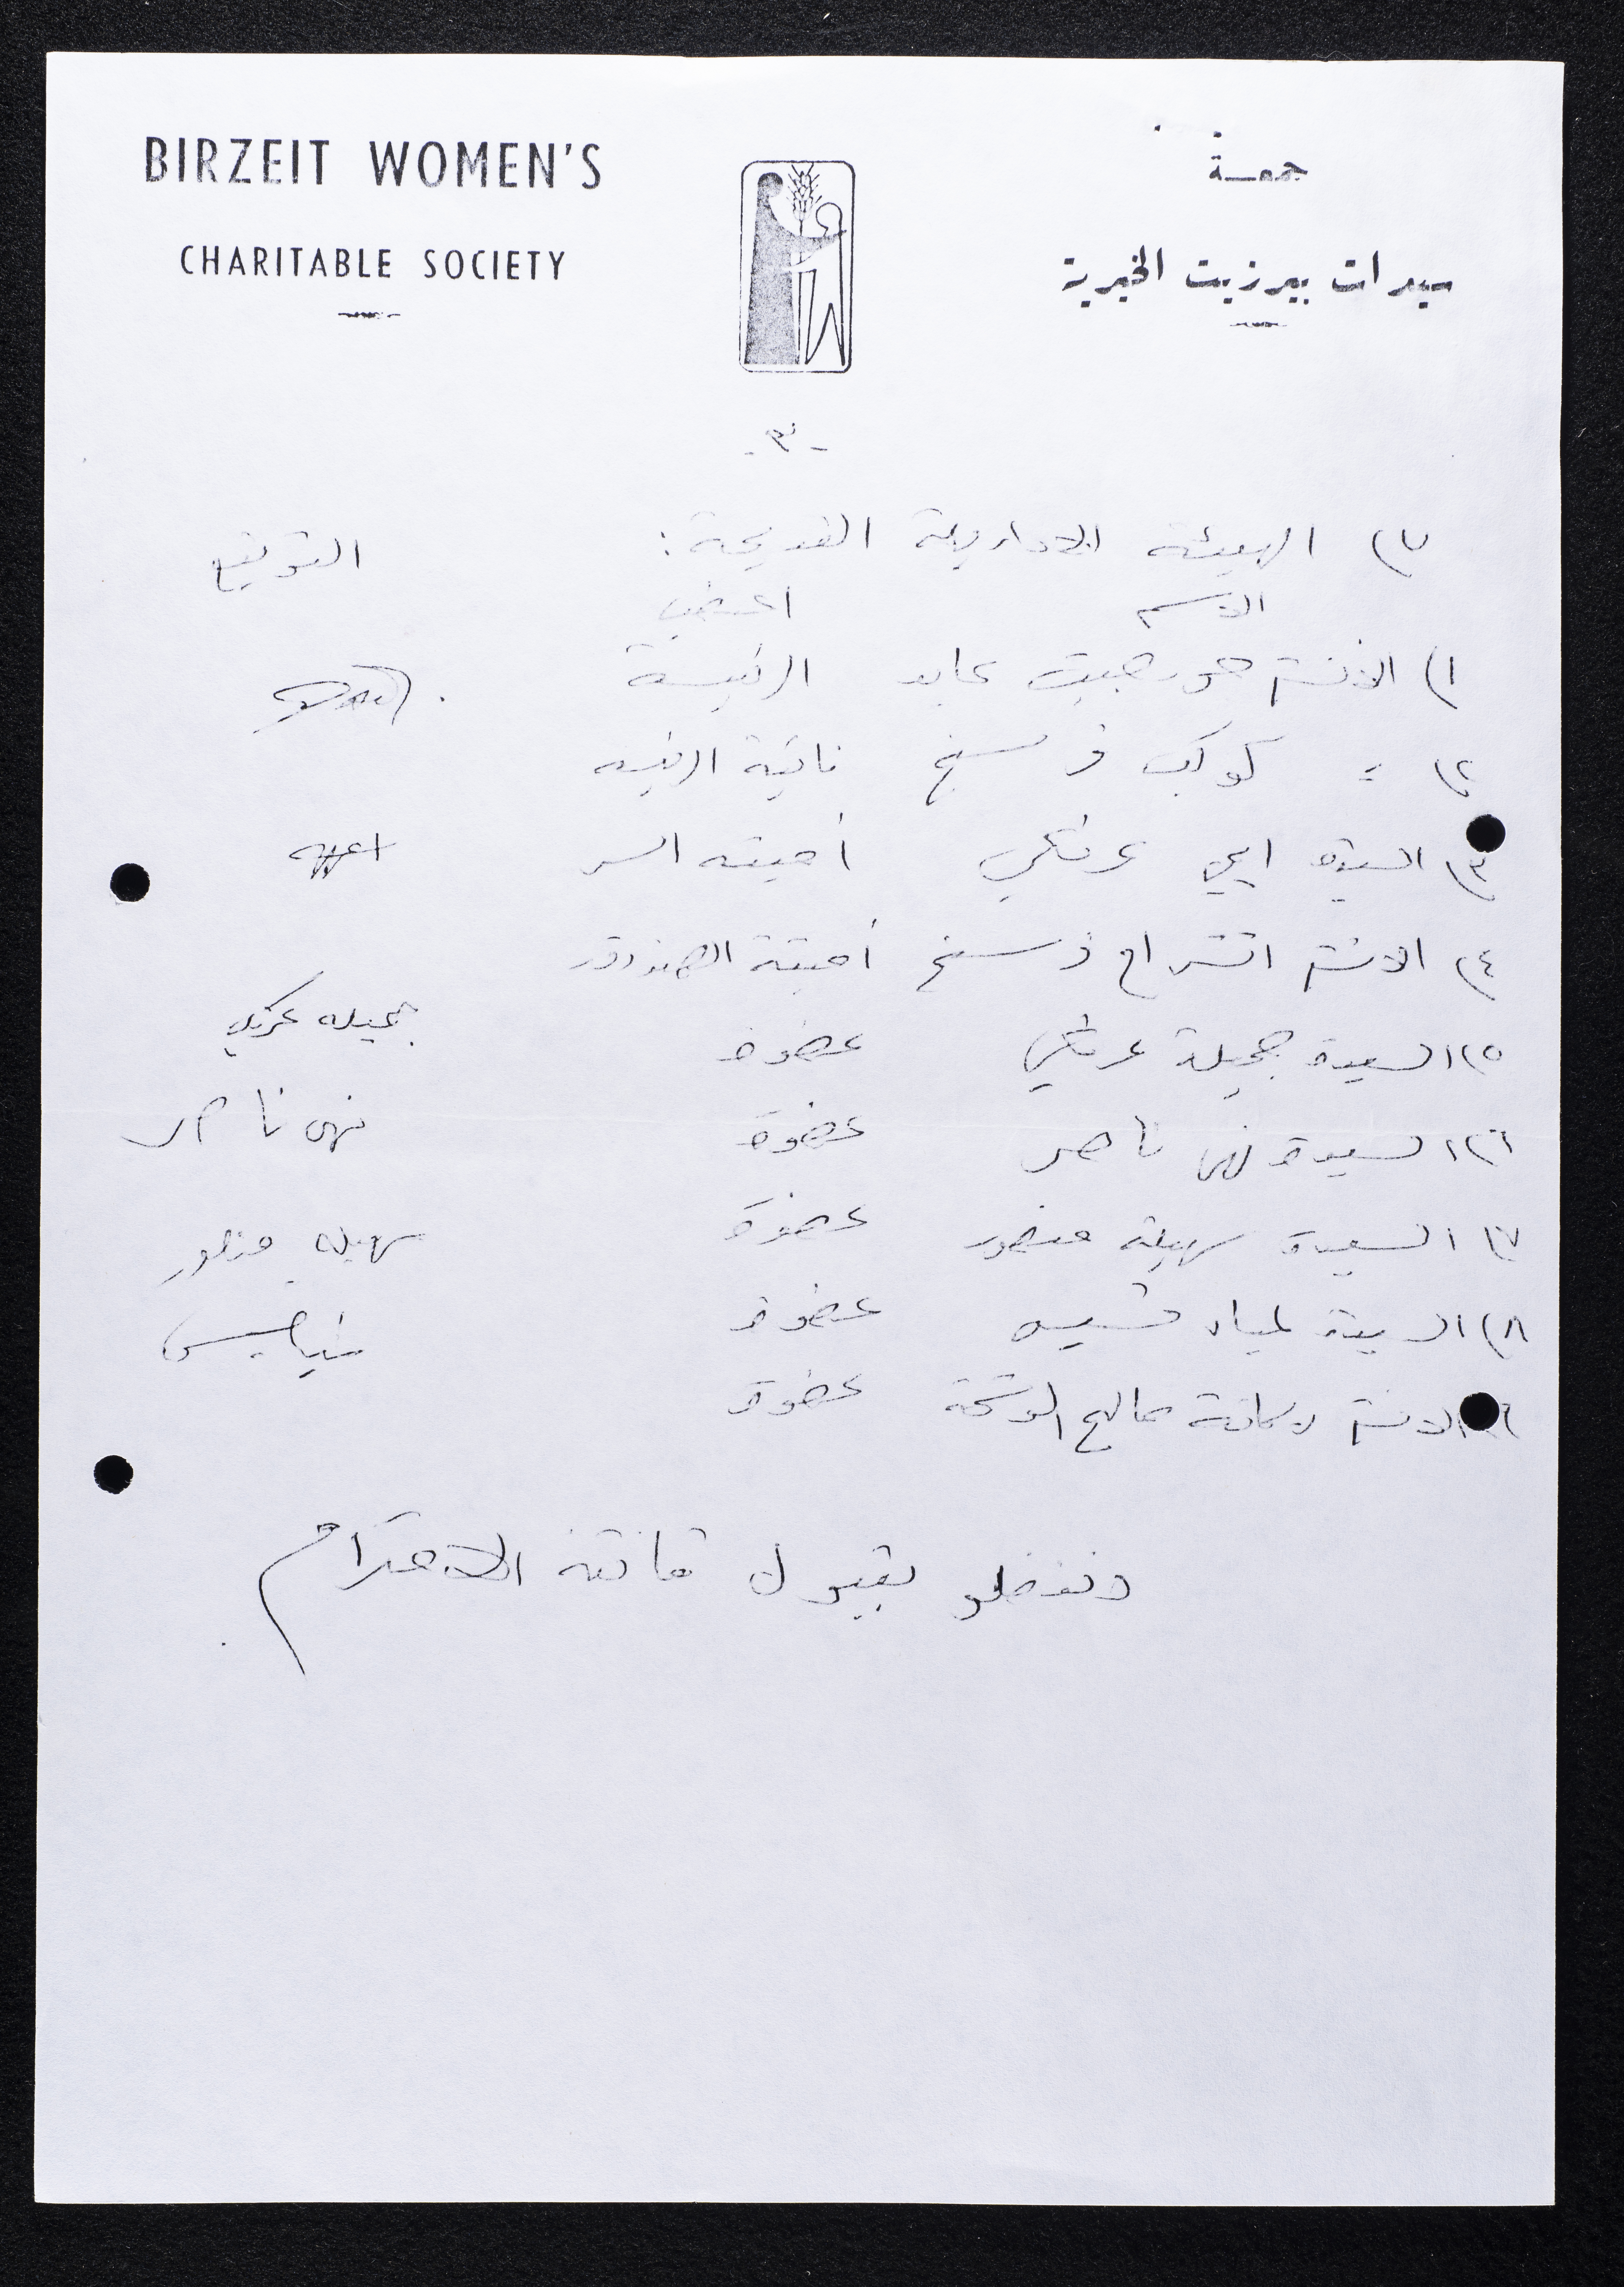 BIRZEIT WOMEN'S
CHARITABLE SOCIETY
جمعية
سيدات بيرزيت الخيرية
-٣-
٧) الهيئة الادارية القديمة: التوقيع
الاسم المنصب
١) الآنسة جورجيت عابد الرئيسة
٢) = كوكب فرسخ نائبة الرئيسه
٣) السيدة ايمي عرنكي أمينة السر
٤) الانسة انشراح فرسخ أمينة الصندوق
٥) السيدة جميلة عرنكي عضوة جميله عرنكي
٦) السيدة نهى ناصر عضوة نهى ناصر
٧) السيدة سهيلة منصور عضوة سهيله منصور
٨) السيدة لمياء قسيس عضوة
الانسة صالح عضوة
وتفضلو بقبول فائقة الاحترام